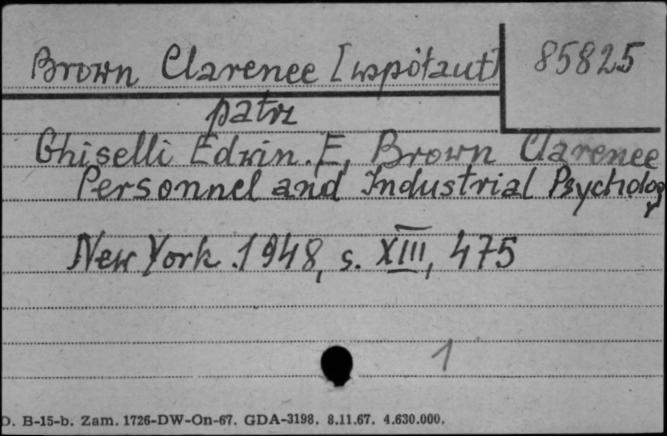 Brown Clarence [współaut]
85825
patrz
Ghiselli Edwin. E, Brown Clarence
Personnel and Industrial Psychology
New York. 1948, s. XIII, 475
1
D. B-15-b. Zam. 1726-DW-On-67. GDA-3198. 8.11.67. 4.630.000.